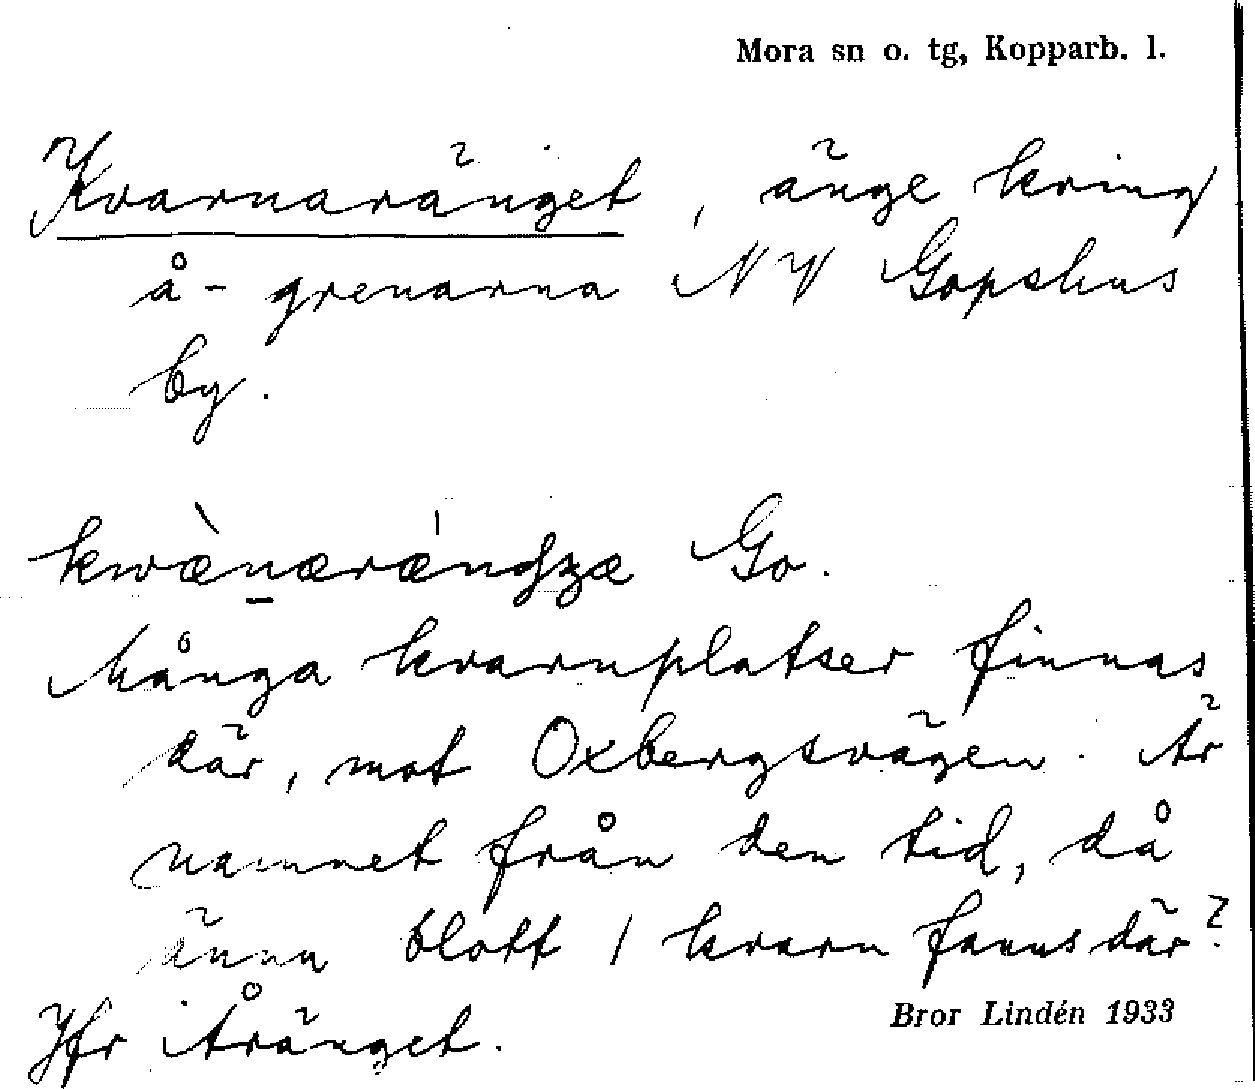 Mora sn o. tg, Kopparb. l.
Kvarnaränget, änge kring
å-grenarna NV Gopshus
by.
Go.
Många kvarnplatser finnas
där, mot Oxbergsvägen. Är
namnet från den tid, då
ännu blott 1 kvarn fanns där?
Jfr Åränget.
Bror Lindén 1933